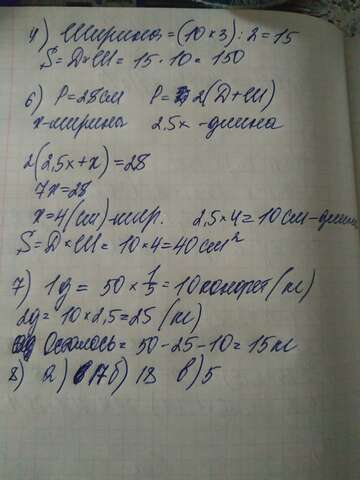 4) Ширина = (10 × 3) : 2 = 15
S = Д × Ш = 15 · 10 = 150
6) P = 28 см P = 2(Д + Ш)
x - ширина 2,5x - длина
2(2,5x + x) = 28
7x = 28
x = 4 (см) - шир. 2,5 × 4 = 10 см - длина
S = Д × Ш = 10 × 4 = 40 см²
7) 1д = 50 × 1/5 = 10 конфет (кг)
2д = 10 × 2,5 = 25 (кг)
Осталось = 50 - 25 - 10 = 15 кг
8) а) 17 б) 18 в) 5